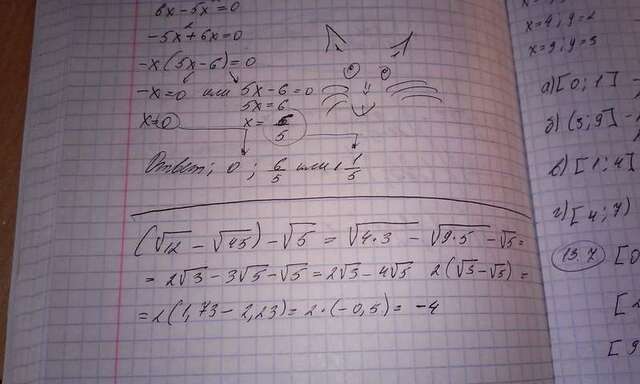 6x-5x²=0
-5x²+6x=0
-x(5x-6)=0
-x=0 или 5x-6=0
5x=6
x=0 x=6/5
Ответ; 0; 6/5 или 1 1/5
(√12-√45)-√5=√4·3-√9·5-√5=
=2√3-3√5-√5=2√3-4√5 2(√3-√5)=
=2(1,73-2,23)=2·(-0,5)= -4
x=4; y=2
x=9; y=3
а)[0;1]
б)(3;9]
в)[1;4]
г)[4;7)
13.7 [0
[
[9